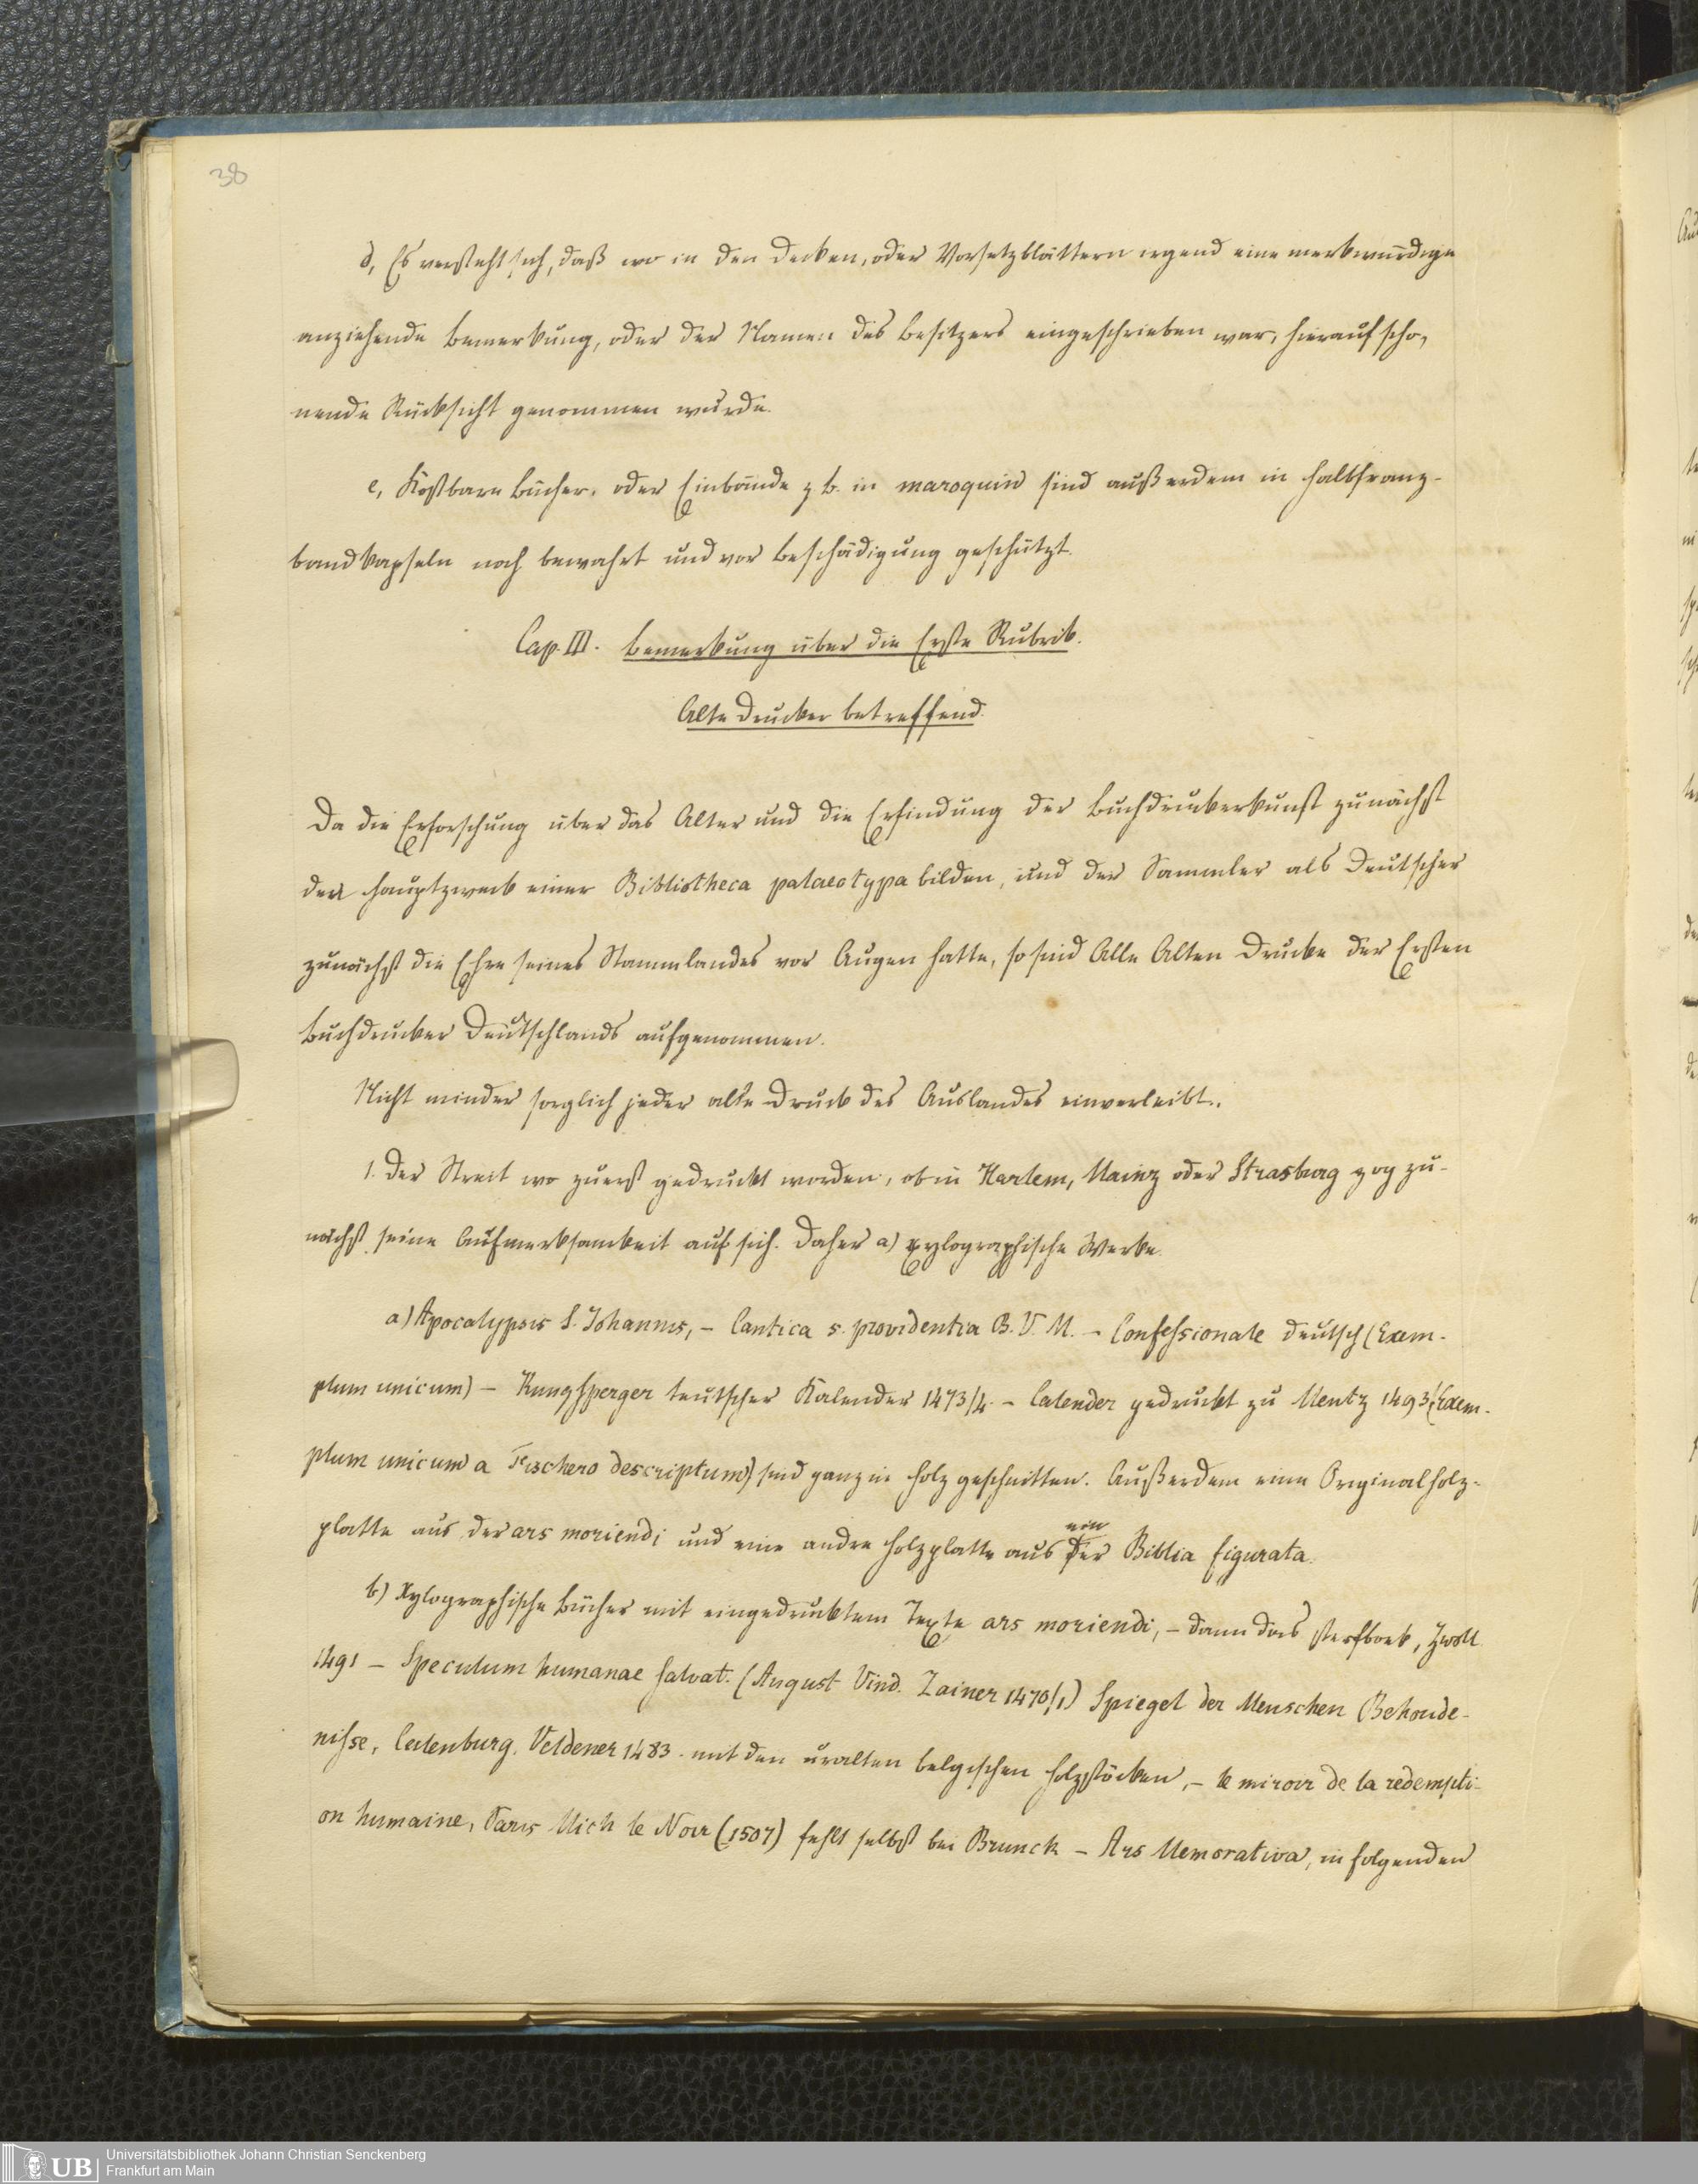 38
d, Es versteht sich, daß wo in den Decken, oder Vorsetzblättern irgend eine merkwürdige
anziehende Bemerkung, oder der Namen des Besitzers eingeschrieben war, hierauf scho,
nende Rücksicht genommen wurde.
e, Kostbare Bücher, oder Einbände z. B. in maroquin sind außerdem in Halbfranz-
bandkapseln noch bewahrt und vor Beschädigung geschützt.
Cap. III. Bemerkung über die Erste Rubrik.
Alte Drucker betreffend.
Da die Erforschung über das Alter und die Erfindung der Buchdruckerkunst zunächst
den Hauptzweck einer Bibliotheca palaeotypa bilden, und der Sammler als Deutscher
zunächst die Ehre seines Stammlandes vor Augen hatte, so sind Alle Alten Drucke der Ersten
Buchdrucker Deutschlands aufgenommen.
Nicht minder sorglich jeder alte Druck des Auslandes einverleibt.
1. Der Streit wo zuerst gedruckt worden, ob in Harlem, Mainz oder Strasburg zog zu-
nächst seine Aufmerksamkeit auf sich. Daher a) xylographische Werke.
a) Apocalypsis S. Johannis, - Cantica s. providentia B. V. M. - Confessionale deutsch (Exem-
plum unicum) - Kungsperger teutscher Kalender 1473/4. - Calender gedruckt zu Mentz 1493 (Exem-
plum unicum a Fischero descriptum) sind ganz in Holz geschnitten. Außerdem eine Originalholz-
platte aus der ars moriendi und eine andre Holzplatte aus der Biblia figurata.
b) Xylographische Bücher mit eingedrucktem Texte ars moriendi, - dann das sterfboek, Zwoll
1491 - Speculum humanae salvat. (August Vind. Zainer 1470/1) Spiegel der Menschen Behoude-
nisse, Culenburg. Veldener 1483. mit den uralten belgischen Holzstöcken, - le miroir de la redempti-
on humaine, Paris Mich le Noir (1507) fehlt selbst bei Brunck - Ars Memorativa, in folgenden
UB
Universitätsbibliothek Johann Christian Senckenberg
Frankfurt am Main